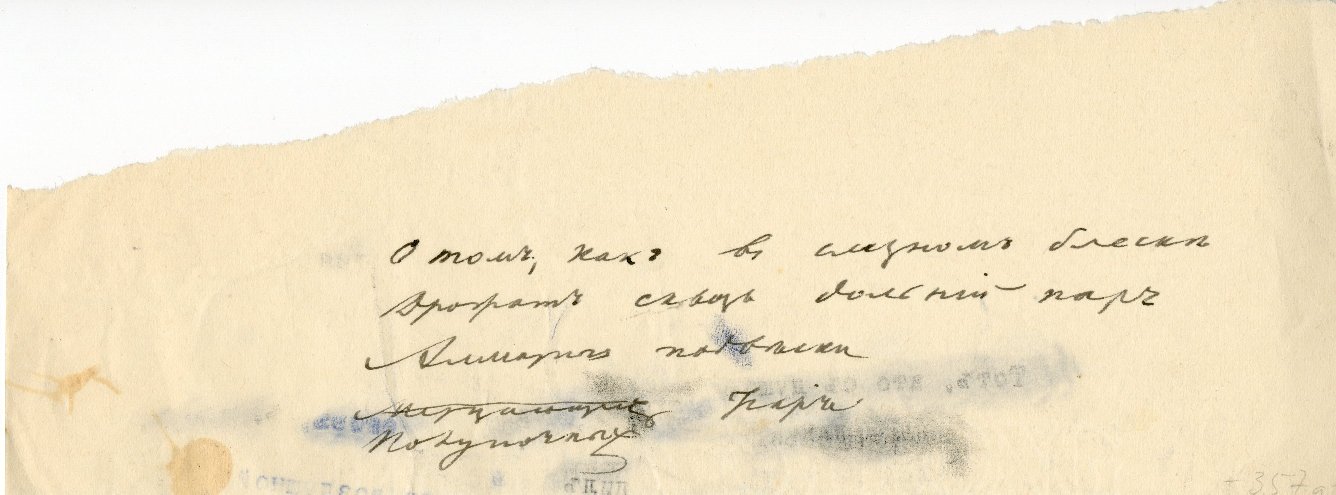 О томъ, какъ въ слезномъ блескѣ
Дрожатъ сквозь дольній паръ
Алмазныя подвѣски
Мерцающихъ Чаръ
Полуночныхъ
Тотъ, кто съ
357а